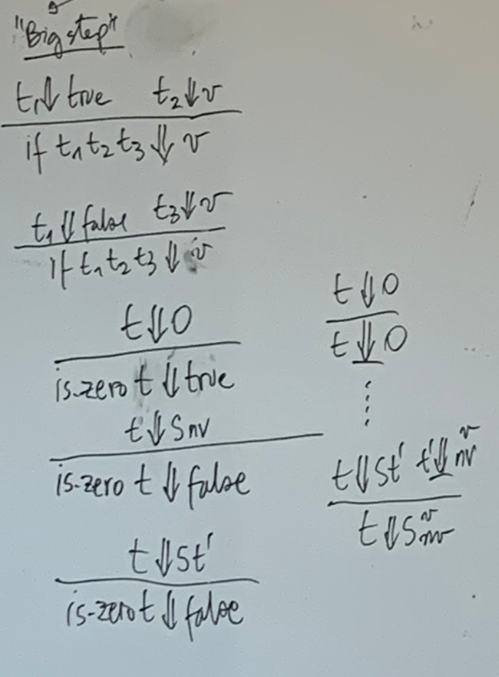 "Big step"
t₁⇓true t₂⇓v
if t₁ t₂ t₃ ⇓ v
t₁⇓false t₃⇓v
if t₁ t₂ t₃ ⇓ v
t⇓0
is-zero t ⇓ true
t⇓S nv
is-zero t ⇓ false
t⇓St'
is-zero t ⇓ false
t⇓0
t⇓0
⋮
t⇓St' t'⇓
t⇓S